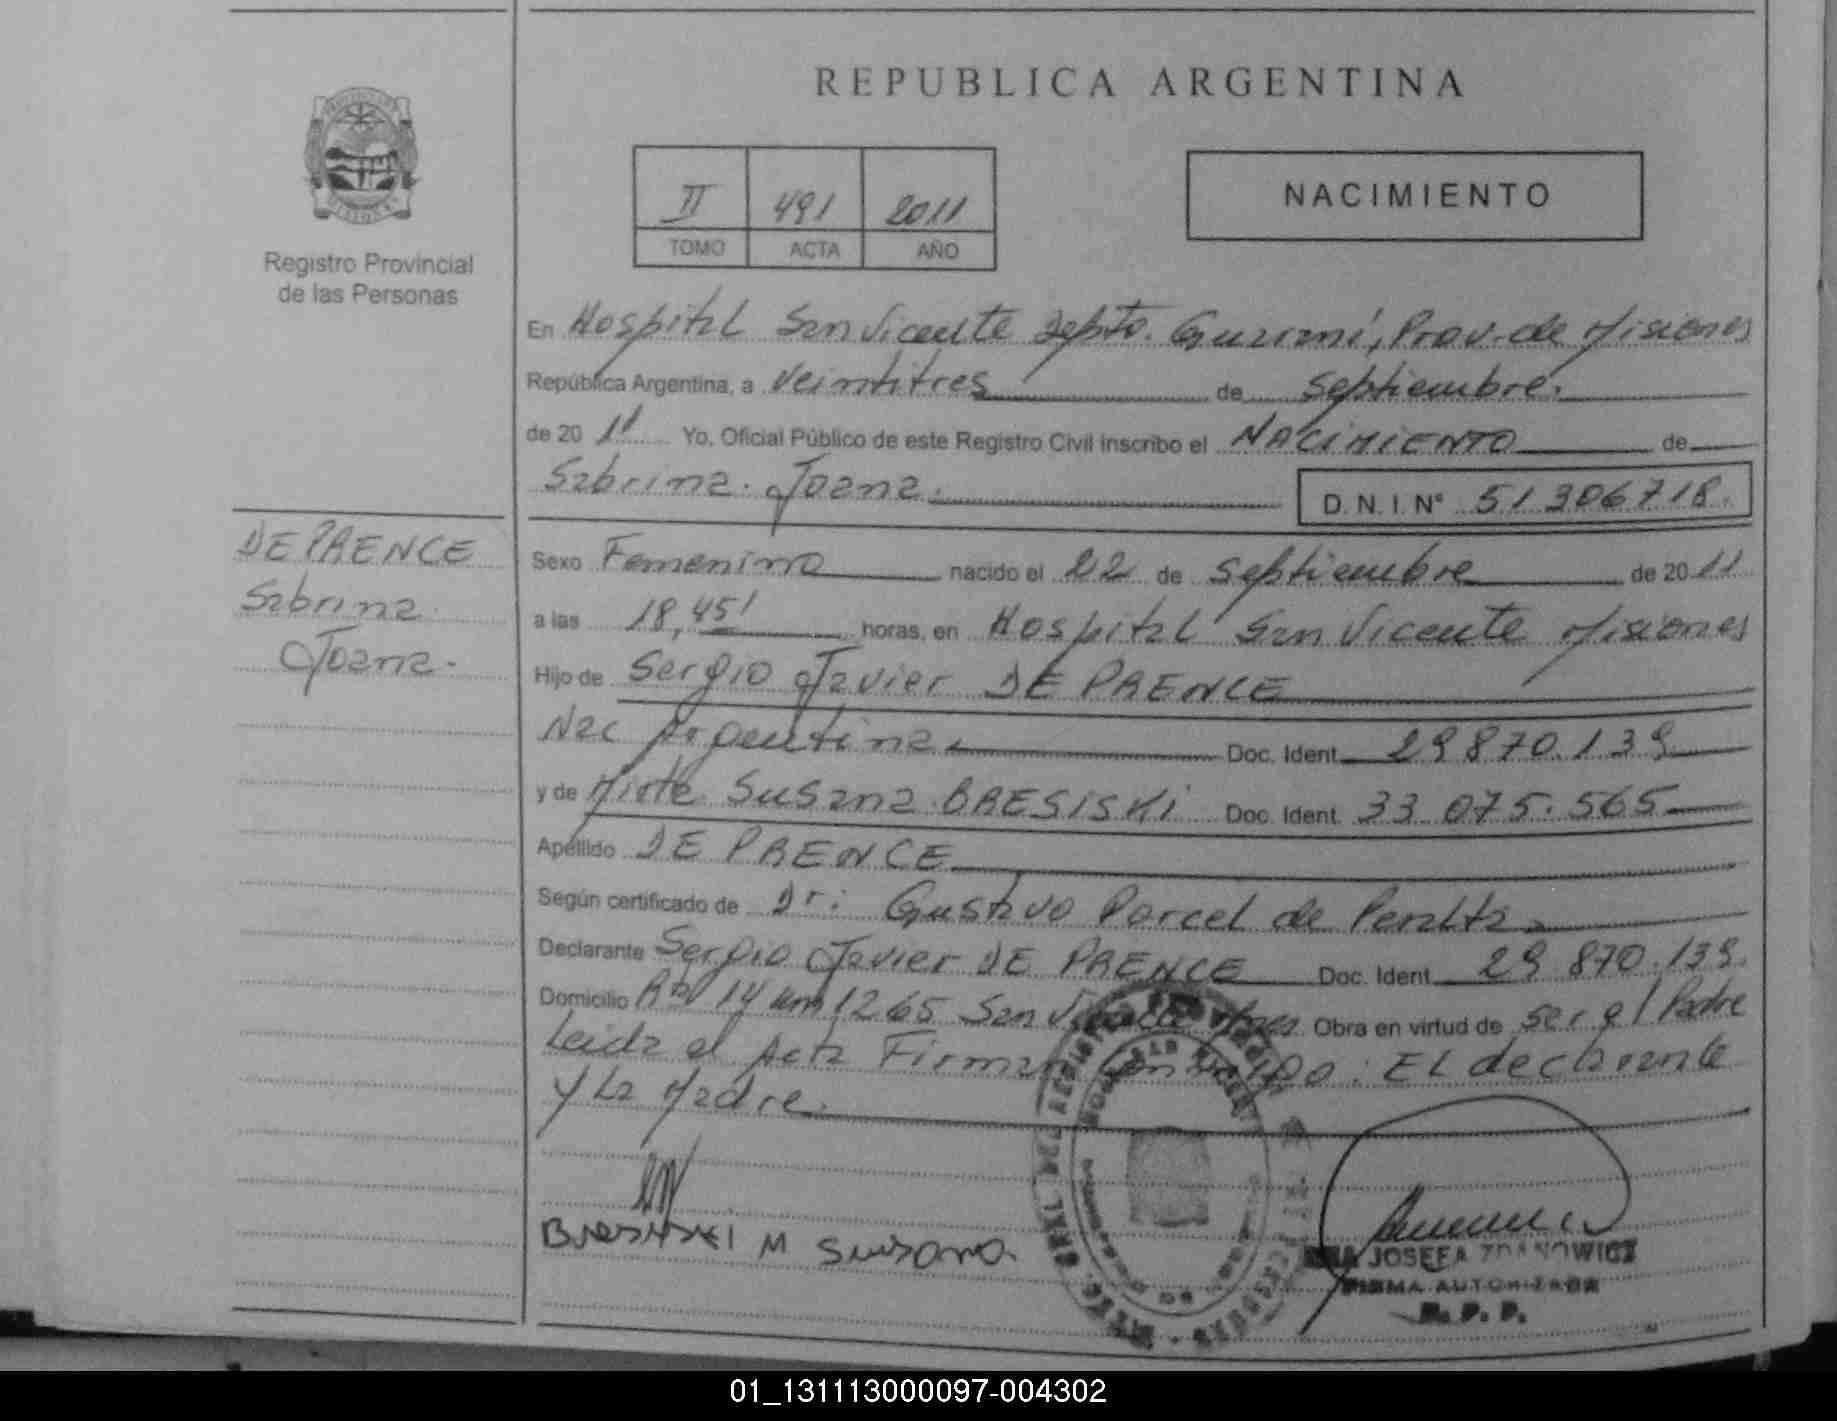 REPUBLICA ARGENTINA
II 491 2011
TOMO ACTA AÑO
NACIMIENTO
Registro Provincial
de las Personas
En Hospital San Vicente Depto. Guaraní, Prov. de Misiones
República Argentina, a Veintitres de Septiembre.
de 20 11 Yo, Oficial Público de este Registro Civil inscribo el NACIMIENTO de
Sabrina Joana. D. N. I. N° 51306718.
DE PRENCE
Sabrina
Joana.
Sexo Femenino nacido el 22 de Septiembre de 20 11
a las 18,45' horas, en Hospital San Vicente Misiones
Hijo de Sergio Javier DE PRENCE
Nac Argentina. Doc. Ident. 29 870.139
y de Mirta Susana BRESISKI Doc. Ident. 33 075.565
Apellido DE PRENCE
Según certificado de Dr: Gustavo Porcel de Peralta
Declarante Sergio Javier DE PRENCE Doc. Ident. 29 870.139.
Domicilio Rta 14 km 1265 San Obra en virtud de ser el Padre
Leida el Acta Firman : EL declarante
y La Madre.
M Susana
JOSEFA ZDANOWICZ
FIRMA AUTORIZADA
R. P. P.
01_131113000097-004302